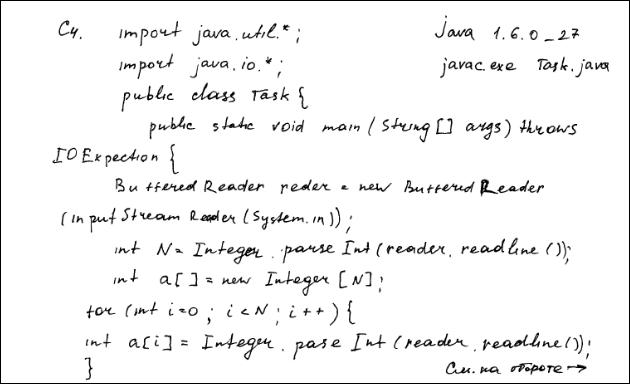 С4. import java.util.*; Java 1.6.0_27
import java.io.*; javac.exe Task.java
public class Task {
public static void main (String[] args) throws
IOExpection {
Buffered Reader reder = new Buffered Reader
(inputStream Reader (System.in));
int N = Integer.parse Int (reader.readline());
int a[] = new Integer [N];
for (int i=0; i<N; i++) {
int a[i] = Integer.pase Int (reader.readline());
}
См. на обороте →